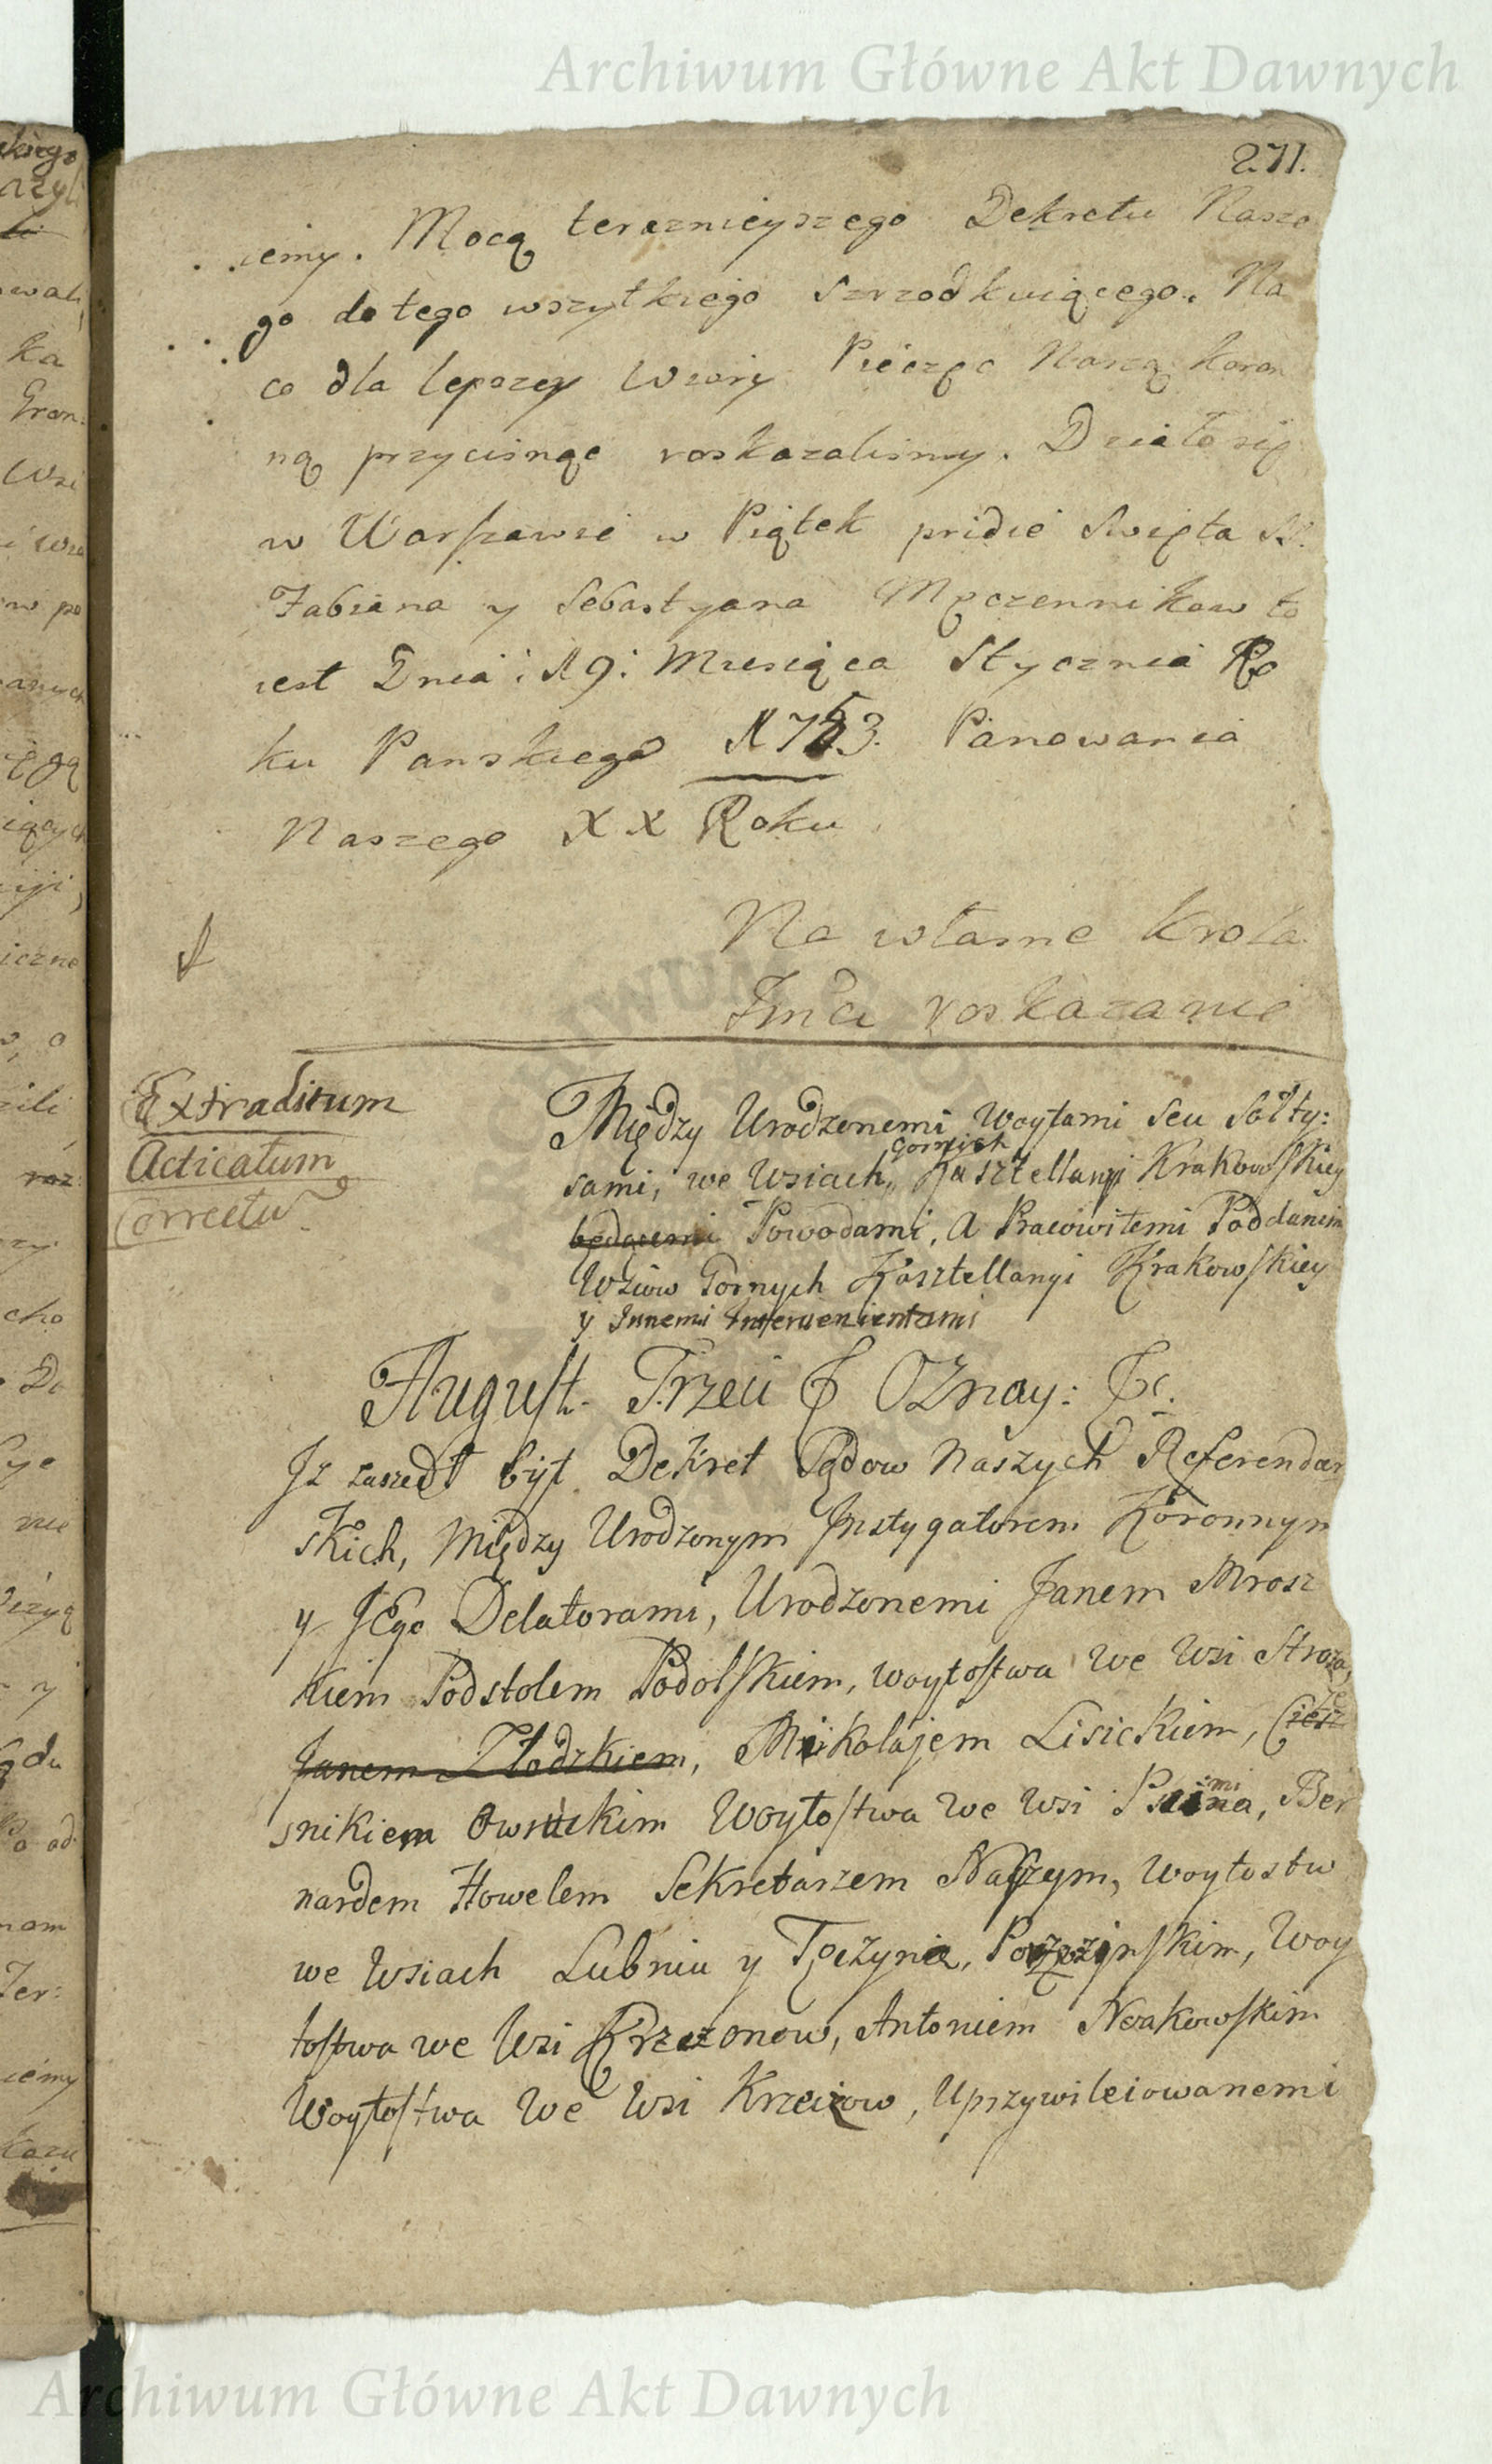 Archiwum Główne Akt Dawnych
271.
iemy. Mocą teraznieyszego Dekretu Nasze
go do tego wszytkiego szrzodkuiącego. Na
co dla lepszey Wiary Pieczęc Naszą Koron
ną przycisnąc roskazalismy. Działo się
w Warszawie w Piątek pridie Swięta SS.
Fabiana y Sebastyana Męczennikow to
iest Dnia: 19: Miesiąca Stycznia Ro
ku Panskiego 1753. Panowania
Naszego XX Roku
Na własne Krola
Jmci roskazanie
Extraditum
Acticatum
Correctu
Między Urodzonemi Woytami seu Sołty:
sami, we Wsiach Gornich Kasztellanyi Krakowskiey
będącemi Powodami, a Pracowitemi Poddanemi
Wsiow Gornych Kasztellanyi Krakowskiey
y Innemi Interwenientami
August Trzeci & Oznay: &c.
Jz zaszedł był Dekret Sądow Naszych Referendar
skich, Między Urodzonym Jnstygatorem Koronnym
y JEgo Delatorami, Urodzonemi Janem Mrosz
kiem Podstolem Podolskiem, woytostwa we Wsi Stroza,
Janem Złodzkiem, Mikolajem Lisickiem, Cześ
snikiem Owruckim Woytostwa we Wsi Psimia, Ber
nardem Howelem Sekretarzem Naszym, Woytostw
we Wsiach Lubniu y Tęczynie, Woy
tostwa we Wsi Krzczonow, Antoniem Nerakowskim
Woytostwa we Wsi Krzeizow, Uprzywileiowanemi
Archiwum Główne Akt Dawnych